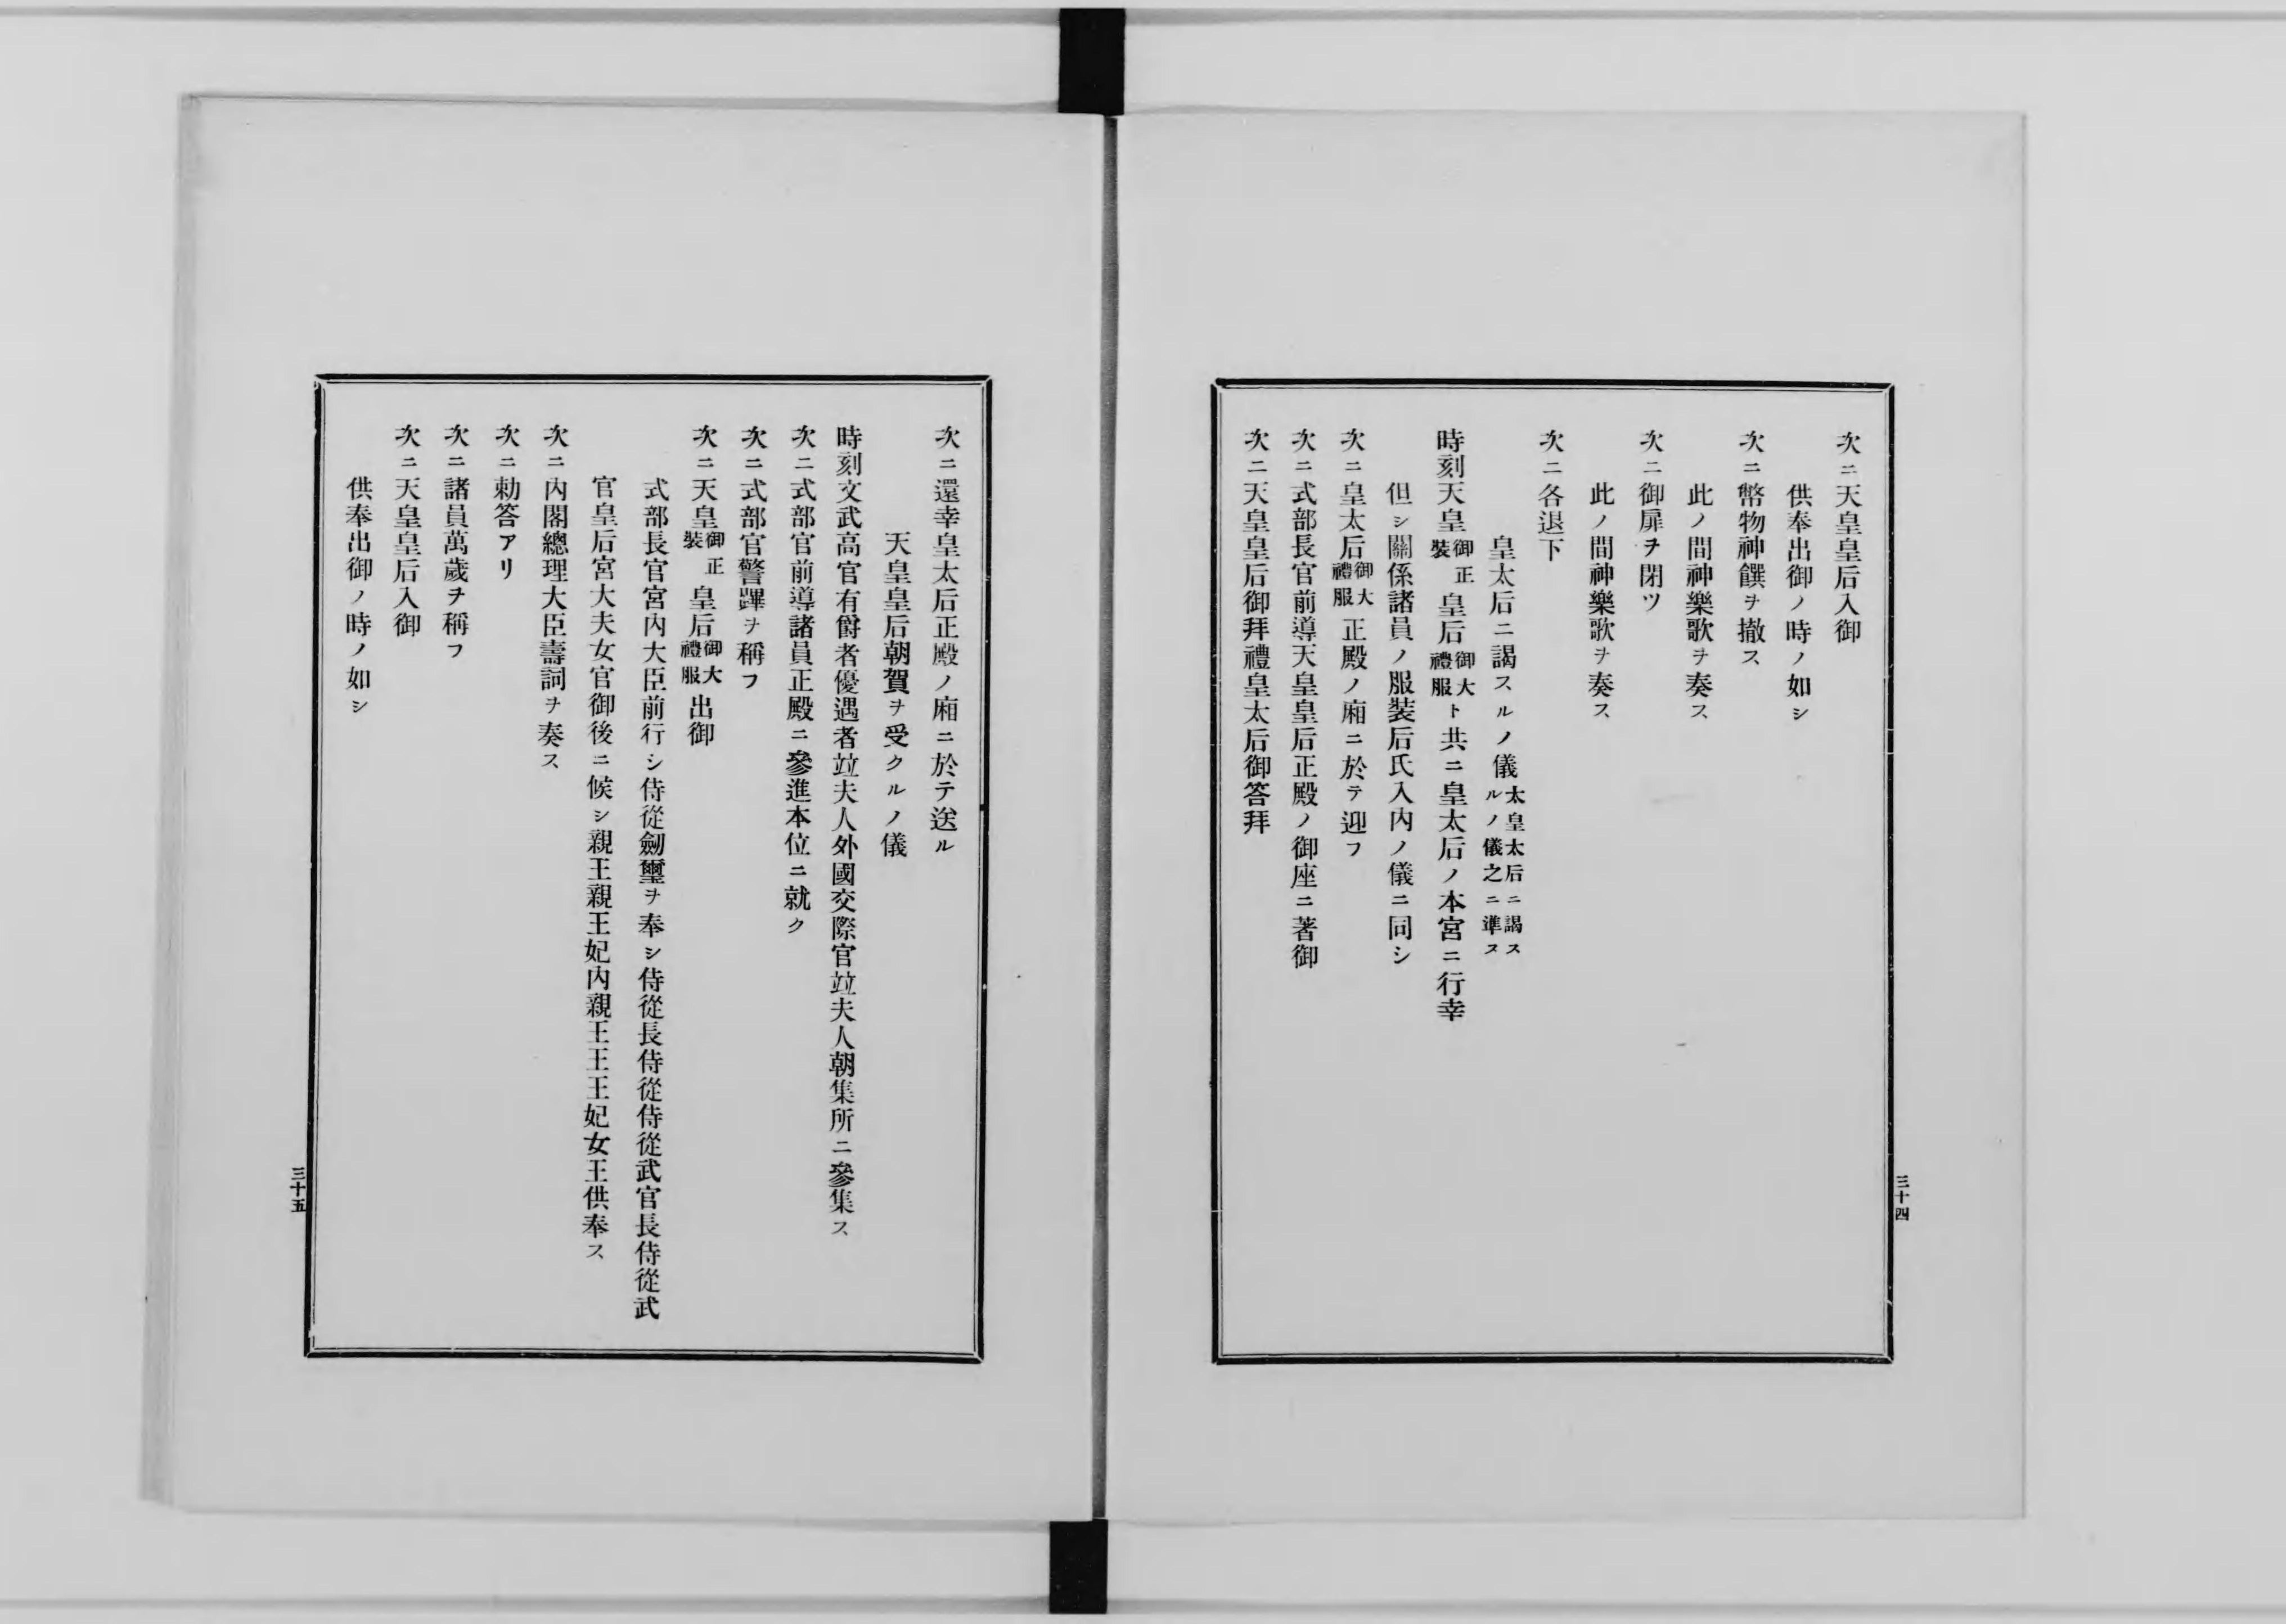 次ニ天皇皇后入御
供奉出御ノ時ノ如シ
次ニ幣物神饌ヲ撤ス
此ノ間神樂歌ヲ奏ス
次ニ御扉ヲ閉ツ
此ノ間神樂歌ヲ奏ス
次ニ各退下
皇太后ニ謁スルノ儀太皇太后ニ謁スルノ儀之ニ準ス
時刻天皇御正裝皇后御大禮服ト共ニ皇太后ノ本宮ニ行幸
但シ關係諸員ノ服裝后氏入內ノ儀ニ同シ
次ニ皇太后御大禮服正殿ノ廂ニ於テ迎フ
次ニ式部長官前導天皇皇后正殿ノ御座ニ著御
次ニ天皇皇后御拜禮皇太后御答拜
三十四
次ニ還幸皇太后正殿ノ廂ニ於テ送ル
天皇皇后朝賀ヲ受クルノ儀
時刻文武高官有爵者優遇者竝夫人外國交際官竝夫人朝集所ニ參集ス
次ニ式部官前導諸員正殿ニ參進本位ニ就ク
次ニ式部官警蹕ヲ稱フ
次ニ天皇御正裝皇后御大禮服出御
式部長官宮內大臣前行シ侍從劒璽ヲ奉シ侍從長侍從侍從武官長侍從武
官皇后宮大夫女官御後ニ候シ親王親王妃內親王王王妃女王供奉ス
次ニ內閣總理大臣壽詞ヲ奏ス
次ニ勅答アリ
次ニ諸員萬歲ヲ稱フ
次ニ天皇皇后入御
供奉出御ノ時ノ如シ
三十五